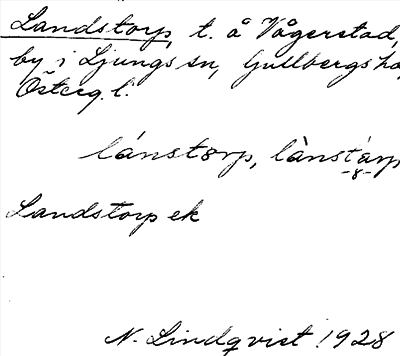 Landstorp, t. å Vågerstad,
by i Ljungs sn, Gullbergs hd,
Österg. l.
lánstorp, lànstàrp
-o-
Landstorp ek
N. Lindqvist 1928